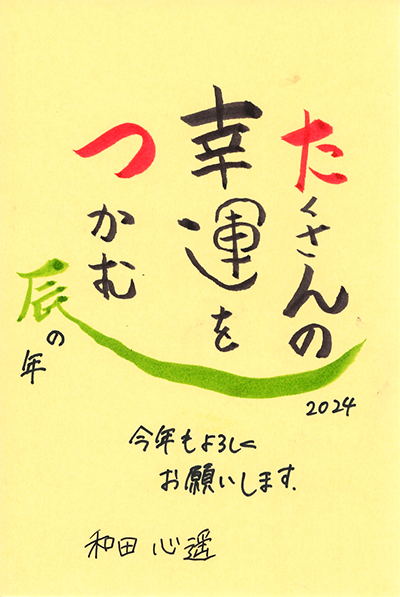 たくさんの
幸運を
つかむ
辰の年
2024
今年もよろしく
お願いします.
和田 心遥